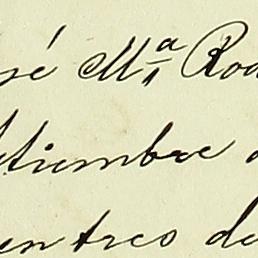 sé Mª Rod
etiembre d
en tres de